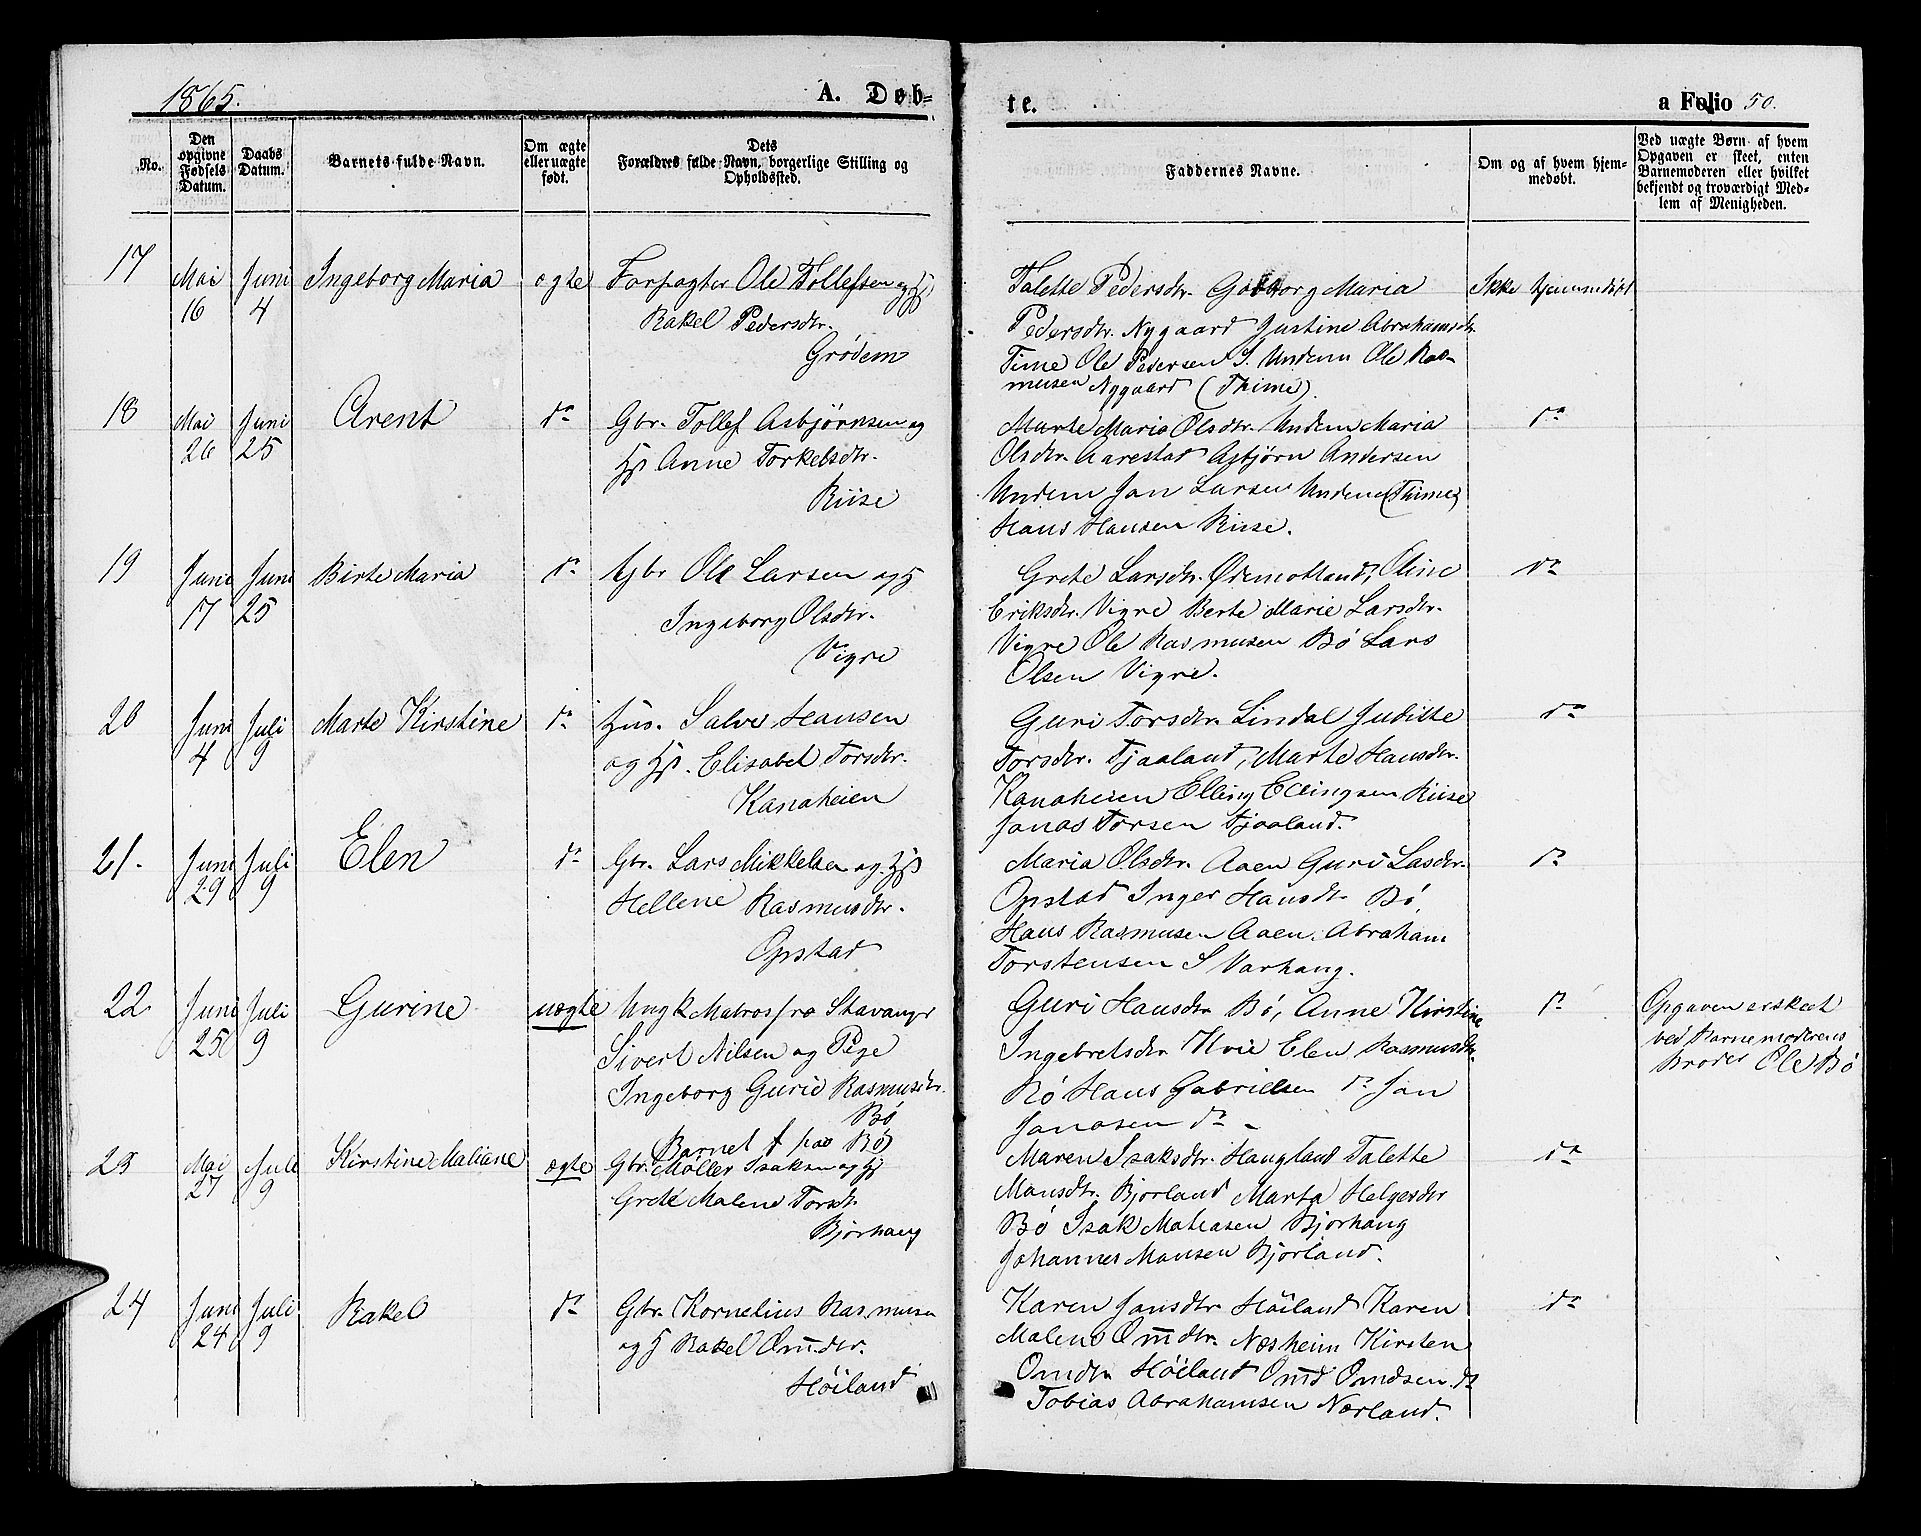 1865.
A. Døb-
te.
a Folio 50.
No.
Den opgivne Fødsels Datum.
Daabs Datum.
Barnets fulde Navn.
Om ægte eller uægte født.
Dets Forældres fulde Navn, borgerlige Stilling og Opholdssted.
Faddernes Navne.
Om og af hvem hjemmedøbt.
Ved uægte Børn af hvem Opgaven er skeet, enten Barnemoderen eller hvilket bekjendt og troværdigt Medlem af Menigheden.
17
Mai 16
Juni 4
Ingeborg Maria
ægte
Forpagter Ole Tollefsen og
Rakel Pedersdtr.
Grødem
Talette Pedersdtr. Maria
Pedersdtr. Nygaard Justine Abrahamsdtr.
Time Ole Pedersen S. Undem Ole Ras-
musen Nygaard (Thime)
Ikke hjemmedøbt
18
Mai 26
Juni 25
Arent
do
Gbr. Tollef Asbjørnsen og
Anne Torkelsdtr.
Riise
Marte Maria Olsdtr. Undem Maria
Olsdtr. Aarestad Asbjørn Andersen
Undem Jan Larsen Undem (Thime)
Hans Hansen Riise.
do
19
Juni 17
Juni 25
Birte Maria
do
Gbr Ole Larsen og
Ingeborg Olsdtr.
Vigre
Grete Larsdtr. Ødemotland, Oline
Eriksdtr. Vigre Berte Marie Larsdtr.
Vigre Ole Rasmusen Bø Lars
Olsen Vigre.
do
20
Juni 4
Juli 9
Marte Kirstine
do
Hus. Salve Hansen
og Elisabet Torsdtr.
Kanaheien
Guri Torsdtr Lindal Juditte
Torsdtr. Tjaaland, Marte Hansdtr.
Kanaheien Elling Ellingsen Riise
Jonas Torsen Tjaaland.
do
21.
Juni 29
Juli 9
Elen
do
Gbr. Lars Mikkelsen og
Hellene Rasmusdtr.
Opstad
Maria Olsdtr. Aaen Guri Lasdtr.
Opstad Inger Hansdtr Bø
Hans Rasmusen Aaen. Abraham
Torstensen S Varhaug.
do
22
Juni 25
Juli 9
Gurine
uægte
Ungk Matros fra Stavanger
Sivert Nilsen og Pige
Ingeborg Gurie Rasmusdtr.
Bø
Barnet f paa Bø
Guri Hansdtr Bø, Anne Kirstine
Ingebretsdtr Hvie Elen Rasmusdtr.
Bø Hans Gabrielsen do Jan
Janasen do -
do
Opgaven er skeet
ved Barnemoderens
Broder Ole Bø
23
Mai 27
Juli 9
Kirstine Maliane
ægte
Gbr. Møller Isaksen og
Grete Malene Torsdtr.
Bjorhaug
Maren Isaksdtr. Haugland Talette
Mansdtr. Bjorland Marta Helgesdtr
Bø Isak Matiasen Bjorhaug
Johannes Mansen Bjorland.
do
24
Juni 24
Juli 9
Rakel
do
Gbr. Kornelius Rasmusen
og Rakel Omdtr.
Høiland
Karen Jansdtr Høiland Karen
Malene Omdtr. Næsheim Kirsten
Omdtr Høiland Omd Omdsen do
Tobias Abrahamsen Nærland.
do